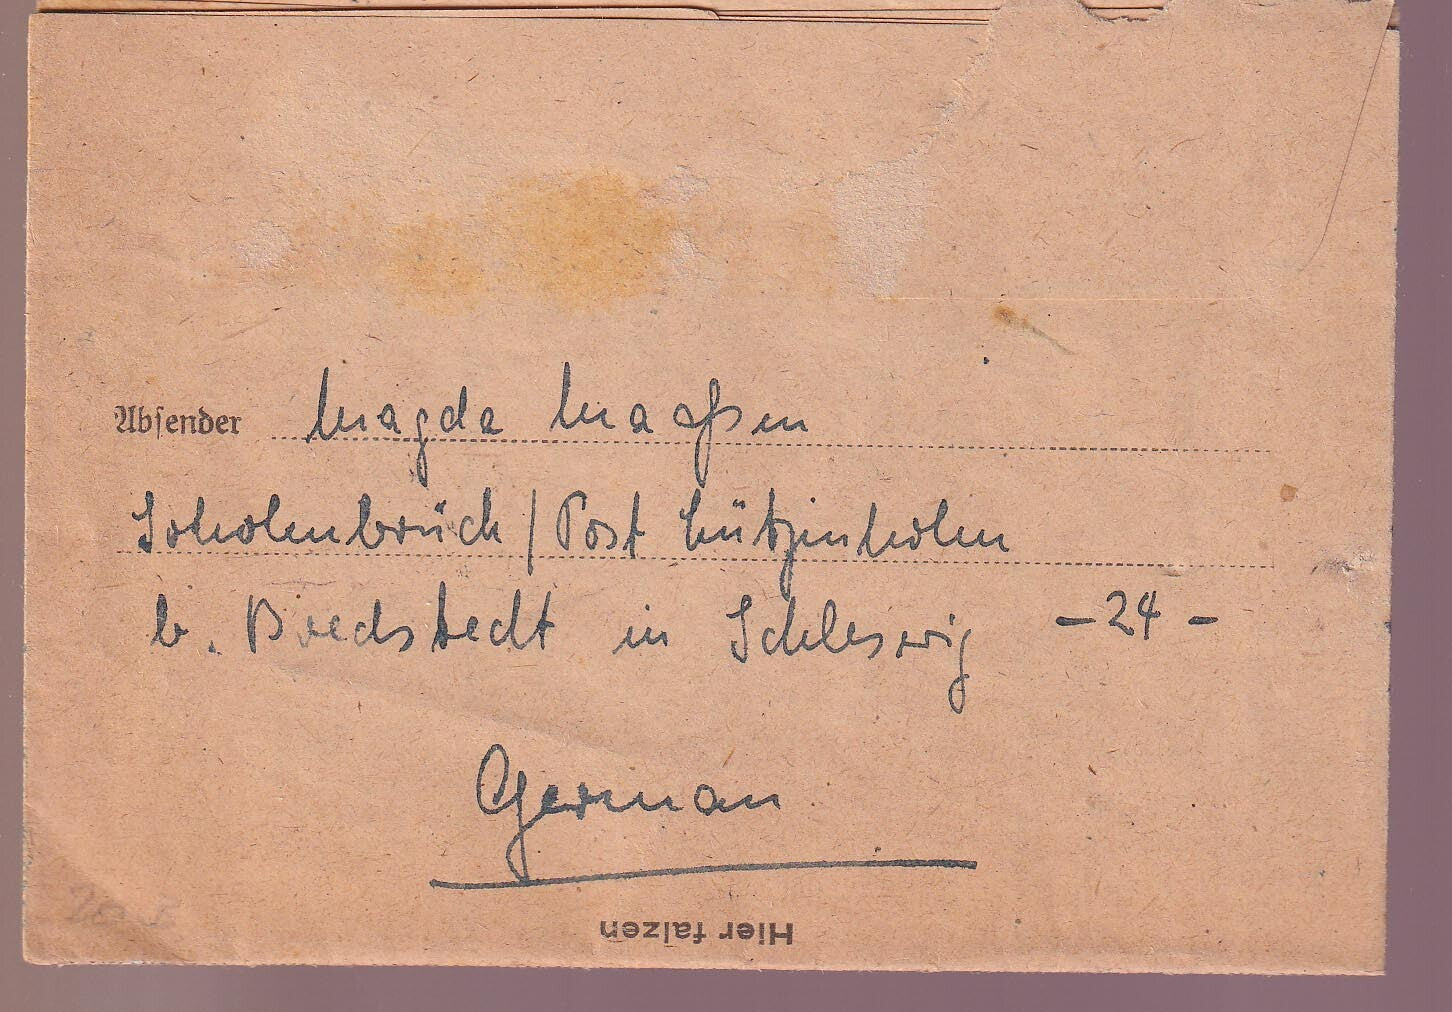 Absender Magda Maaßen
Soholmbrück / Post Lützenholm
b. Bredstedt in Schleswig - 24 -
German
Hier falzen